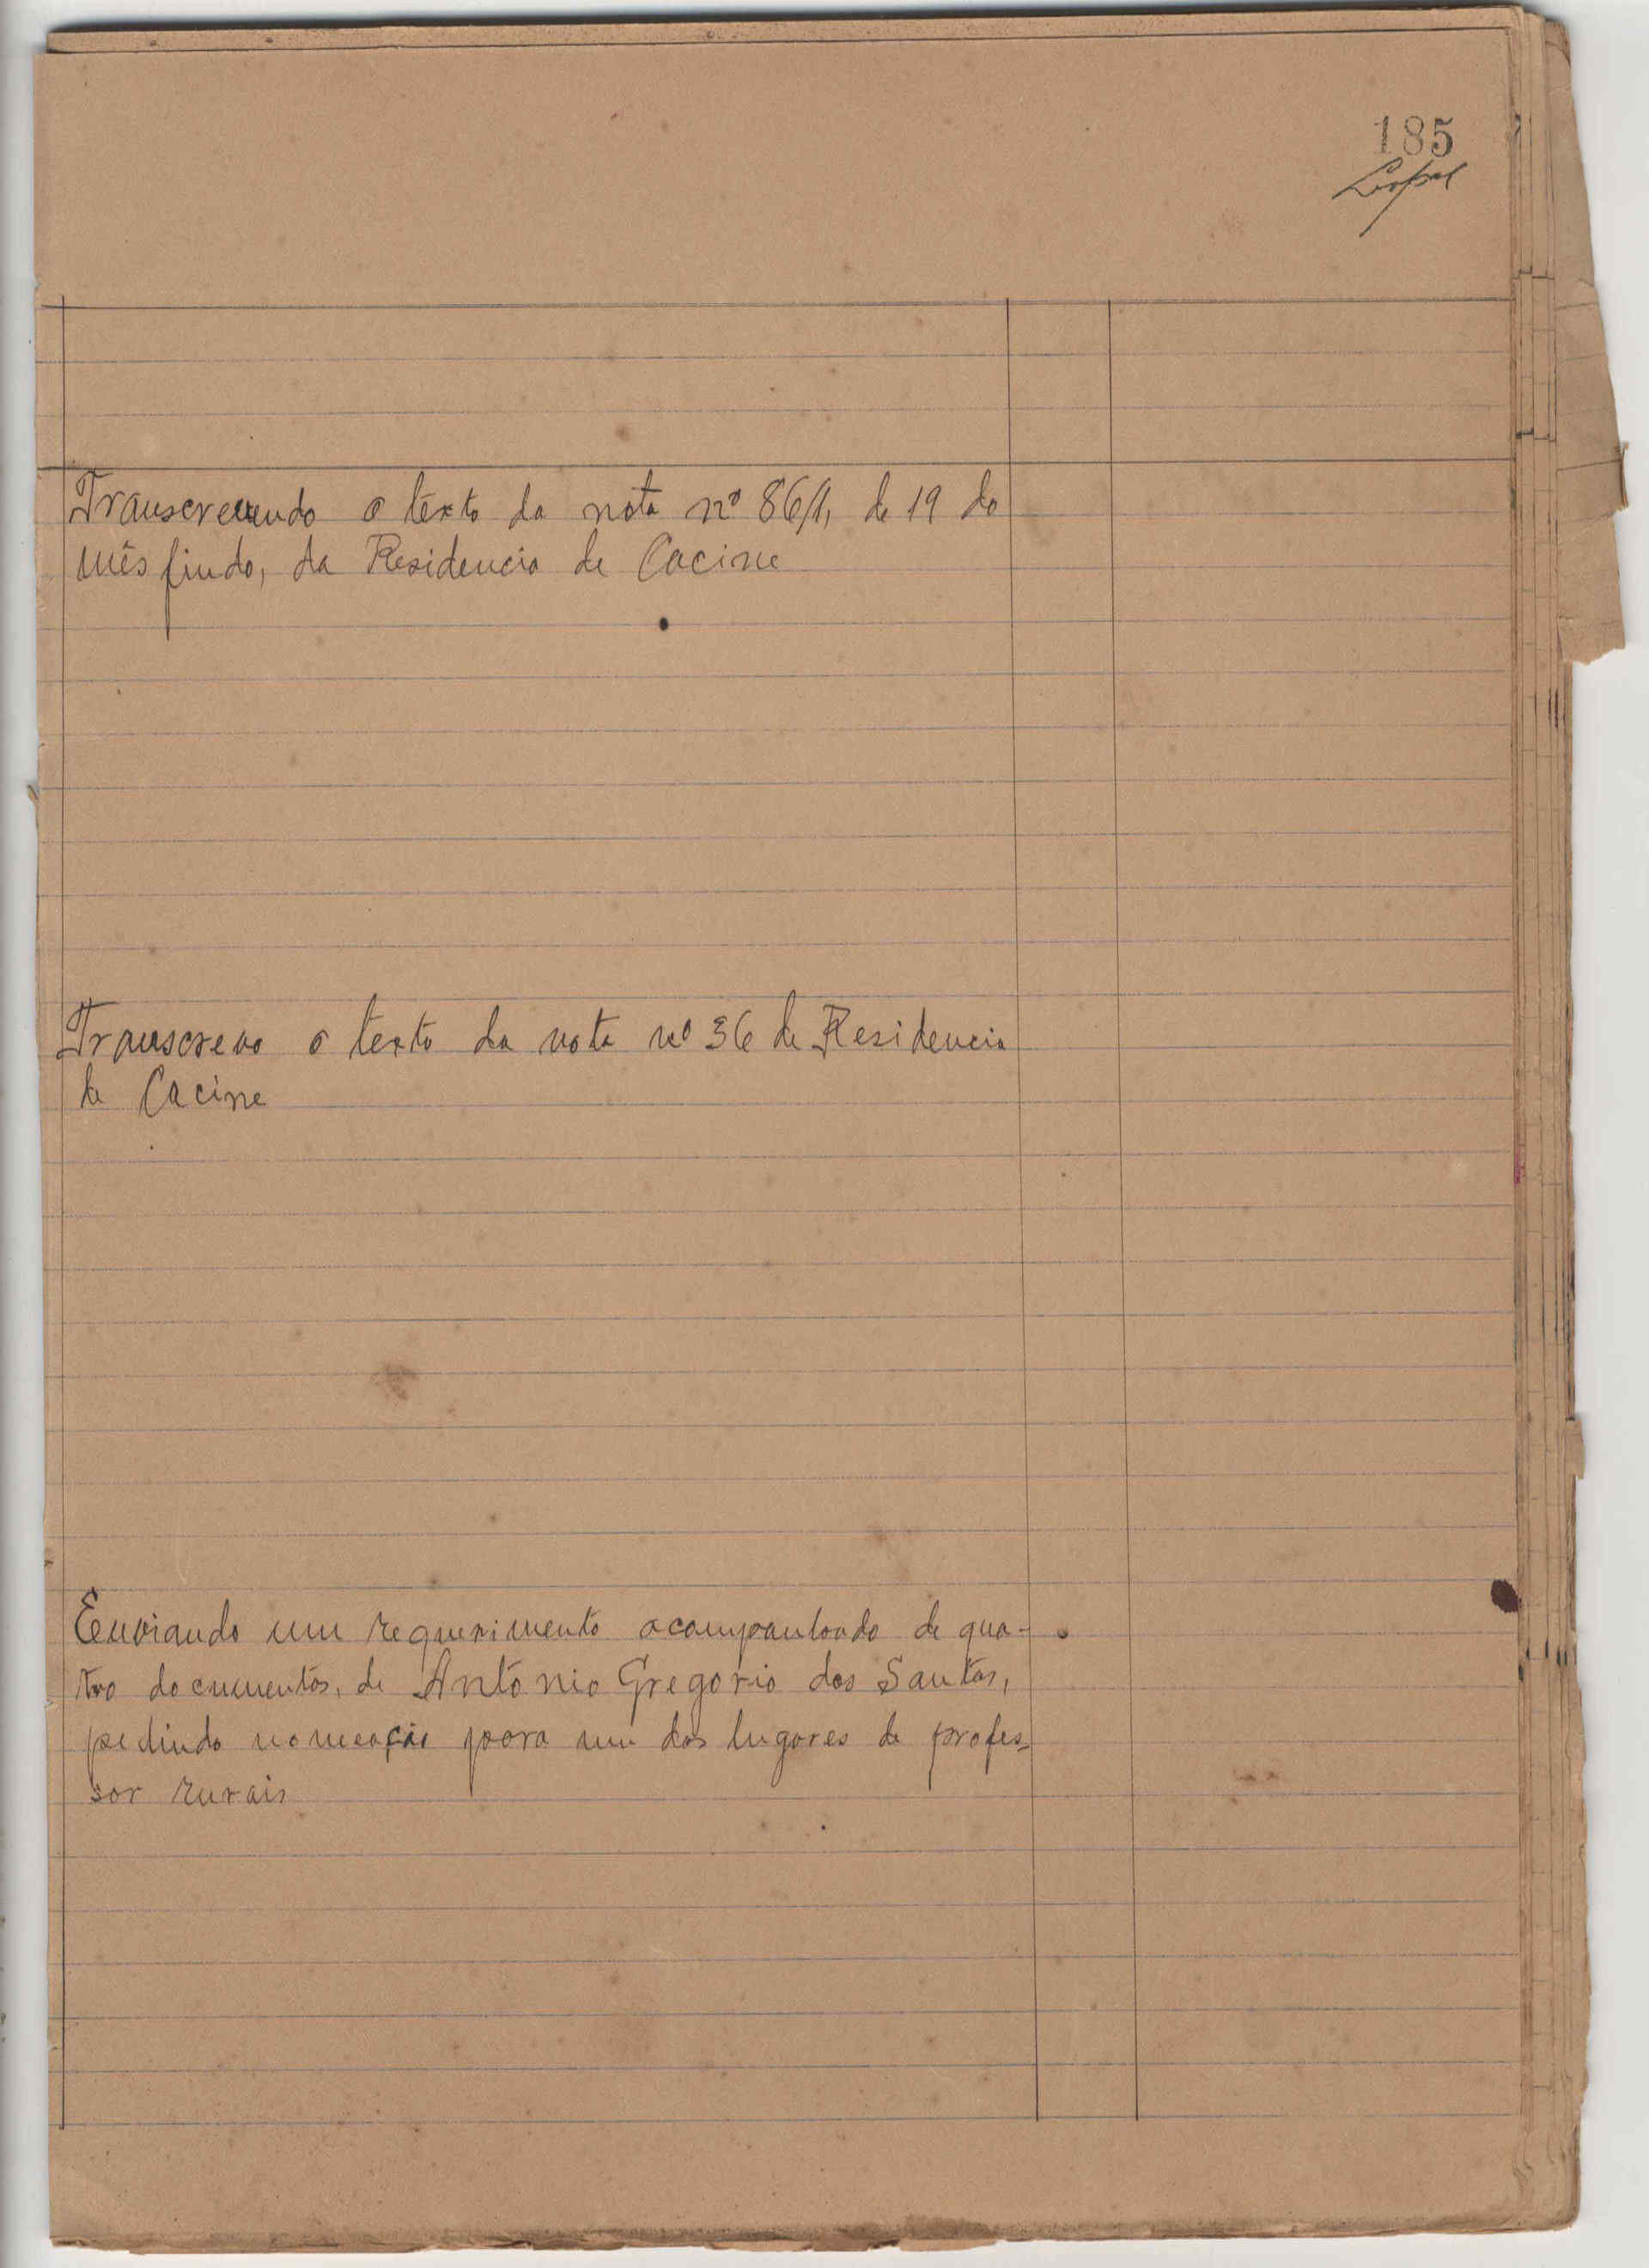 185
Transcrevendo o têxto da nota nº 86/1, de 19 do
mês findo, da Residencia de Cacine
Transcrevo o texto da nota nº 36 de Residencia
de Cacine
Enviando um requerimento acompanhado de qua-
tro documentos, de António Gregorio dos Santos,
pedindo nomeação para um dos lugares de profes-
sor rurais